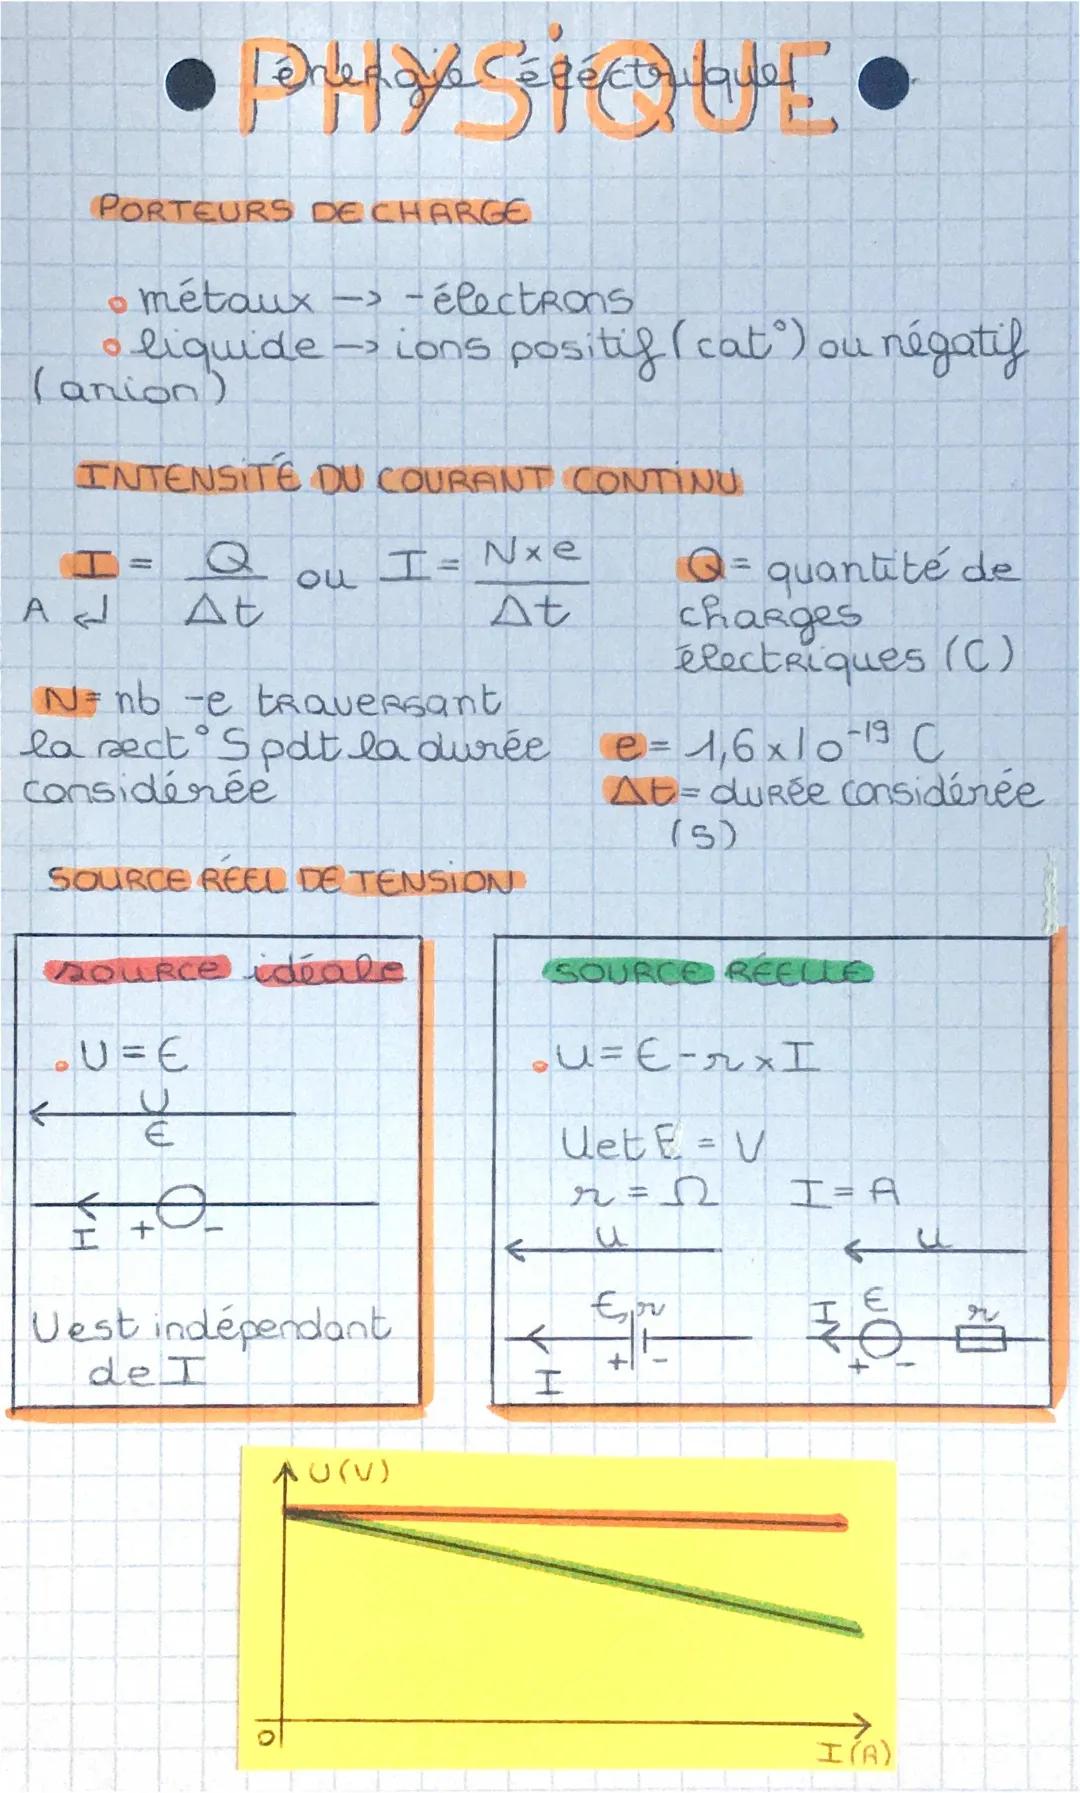 PHYSIQUE
l'énergie électrique
PORTEURS DE CHARGE
métaux -> -électrons
liquide -> ions positif (cat°) ou négatif
(anion)
INTENSITÉ DU COURANT CONTINU
I = Q/Δt ou I = N×e/Δt
A ↲
Q = quantité de
charges
électriques (C)
N = nb -e traversant
la sect° S pdt la durée
considérée
e = 1,6 x 10⁻¹⁹ C
Δt = durée considérée
(s)
SOURCE RÉEL DE TENSION
source idéale
U = E
U
E
I + -
U est indépendant
de I
SOURCE RÉELLE
U = E - r x I
U et E = V
r = Ω I = A
U
E, r
+ -
I
U
I E r
+ -
U(V)
0
I(A)